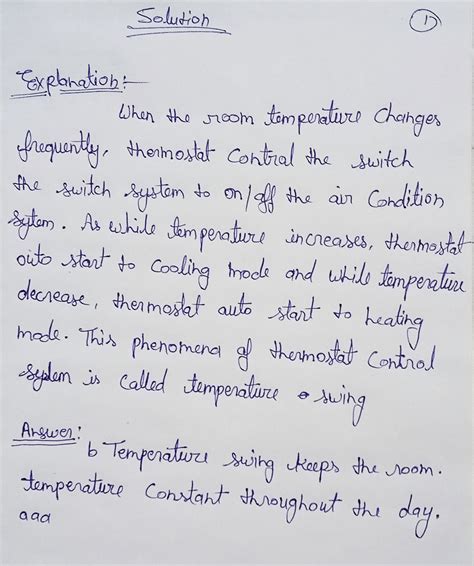 Solution
1
Explanation:-
When the room temperature Changes
frequently, thermostat Control the switch
the switch system to on/off the air Condition
sytem. As while temperature increases, thermostat
auto start to Cooling mode and while temperature
decrease, thermostat auto start to heating
mode. This phenomena of thermostat Control
system is Called temperature swing
Answer:
b Temperature swing keeps the room.
temperature Constant throughout the day.
aaa